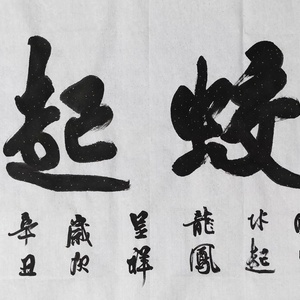 蛟起
水起
龍鳳
呈祥
歲次
辛丑